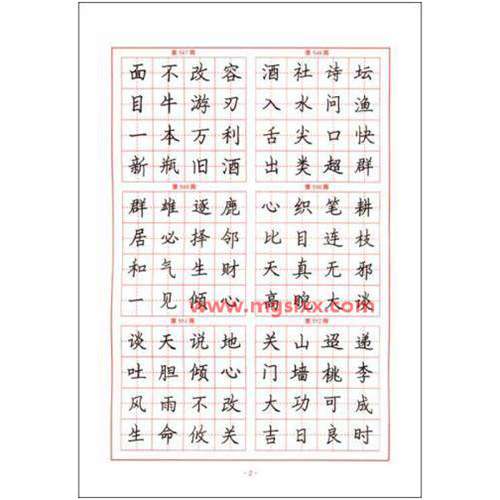 面不改容
目牛游刃
一本万利
新瓶旧酒
酒社诗坛
入水问渔
舌尖口快
出类超群
群雄逐鹿
居必择邻
和气生财
一见倾心
心织笔耕
比目连枝
天真无邪
高睨大谈
谈天说地
吐胆倾心
风雨不改
生命攸关
关山迢递
门墙桃李
大功可成
吉日良时
www.mgshx.com
- 2 -